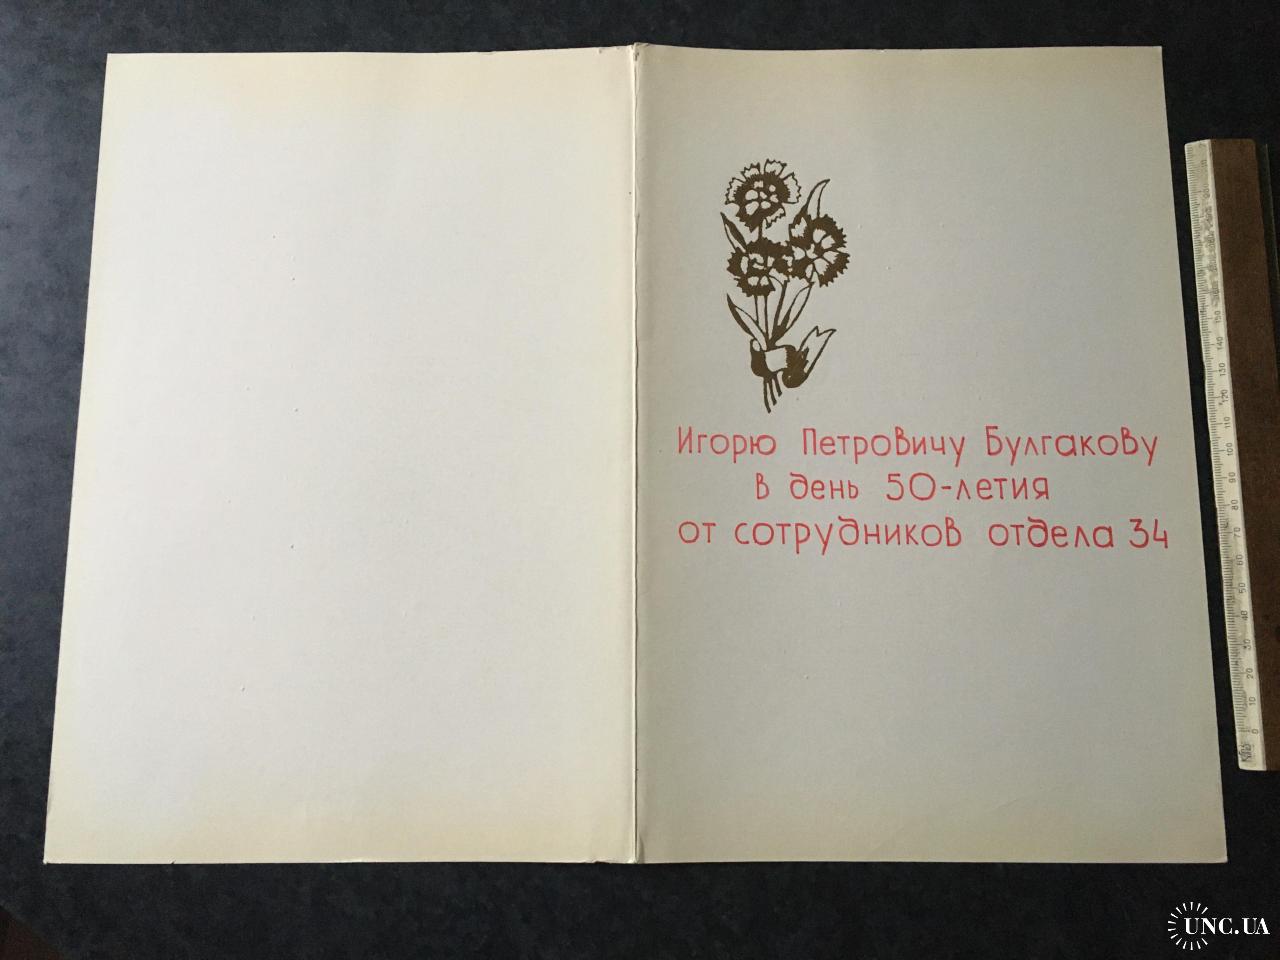 Игорю Петровичу Булгакову
в день 50-летия
от сотрудников отдела 34
UNC.UA